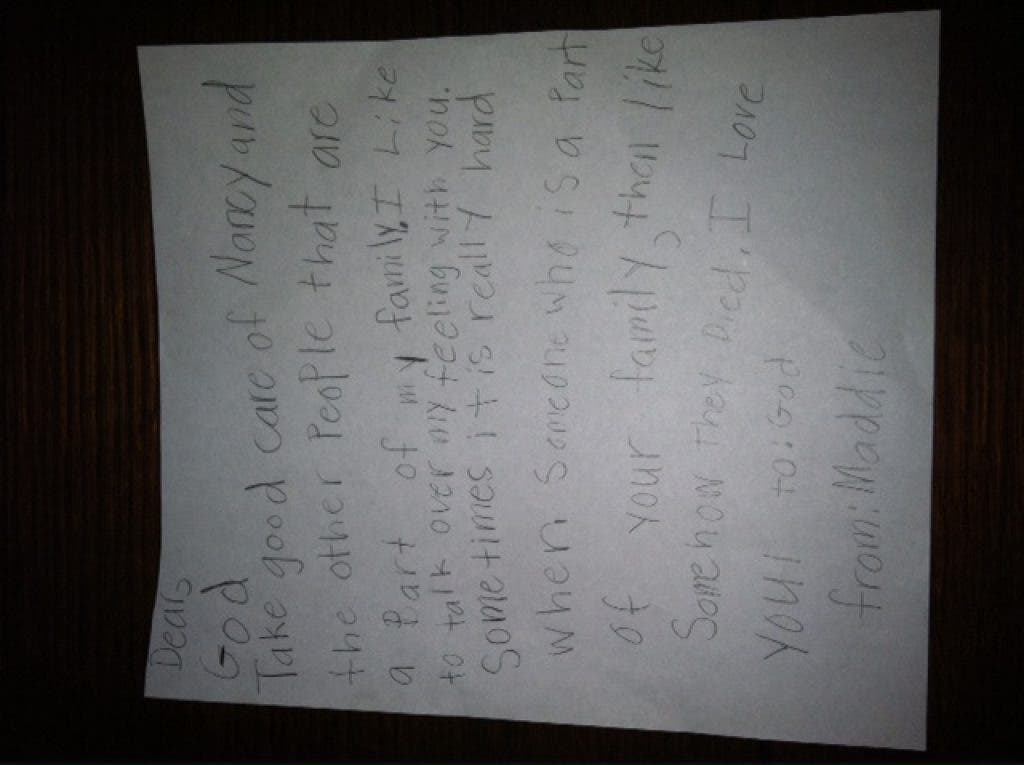 Dear,
God
Take good care of Nancy and
the other People that are
a Part of my family. I Like
to talk over my feeling with you.
Sometimes it is really hard
when Someone who is a Part
of your family, then like
Somehow They Died. I Love
you! to: God
from: Maddie